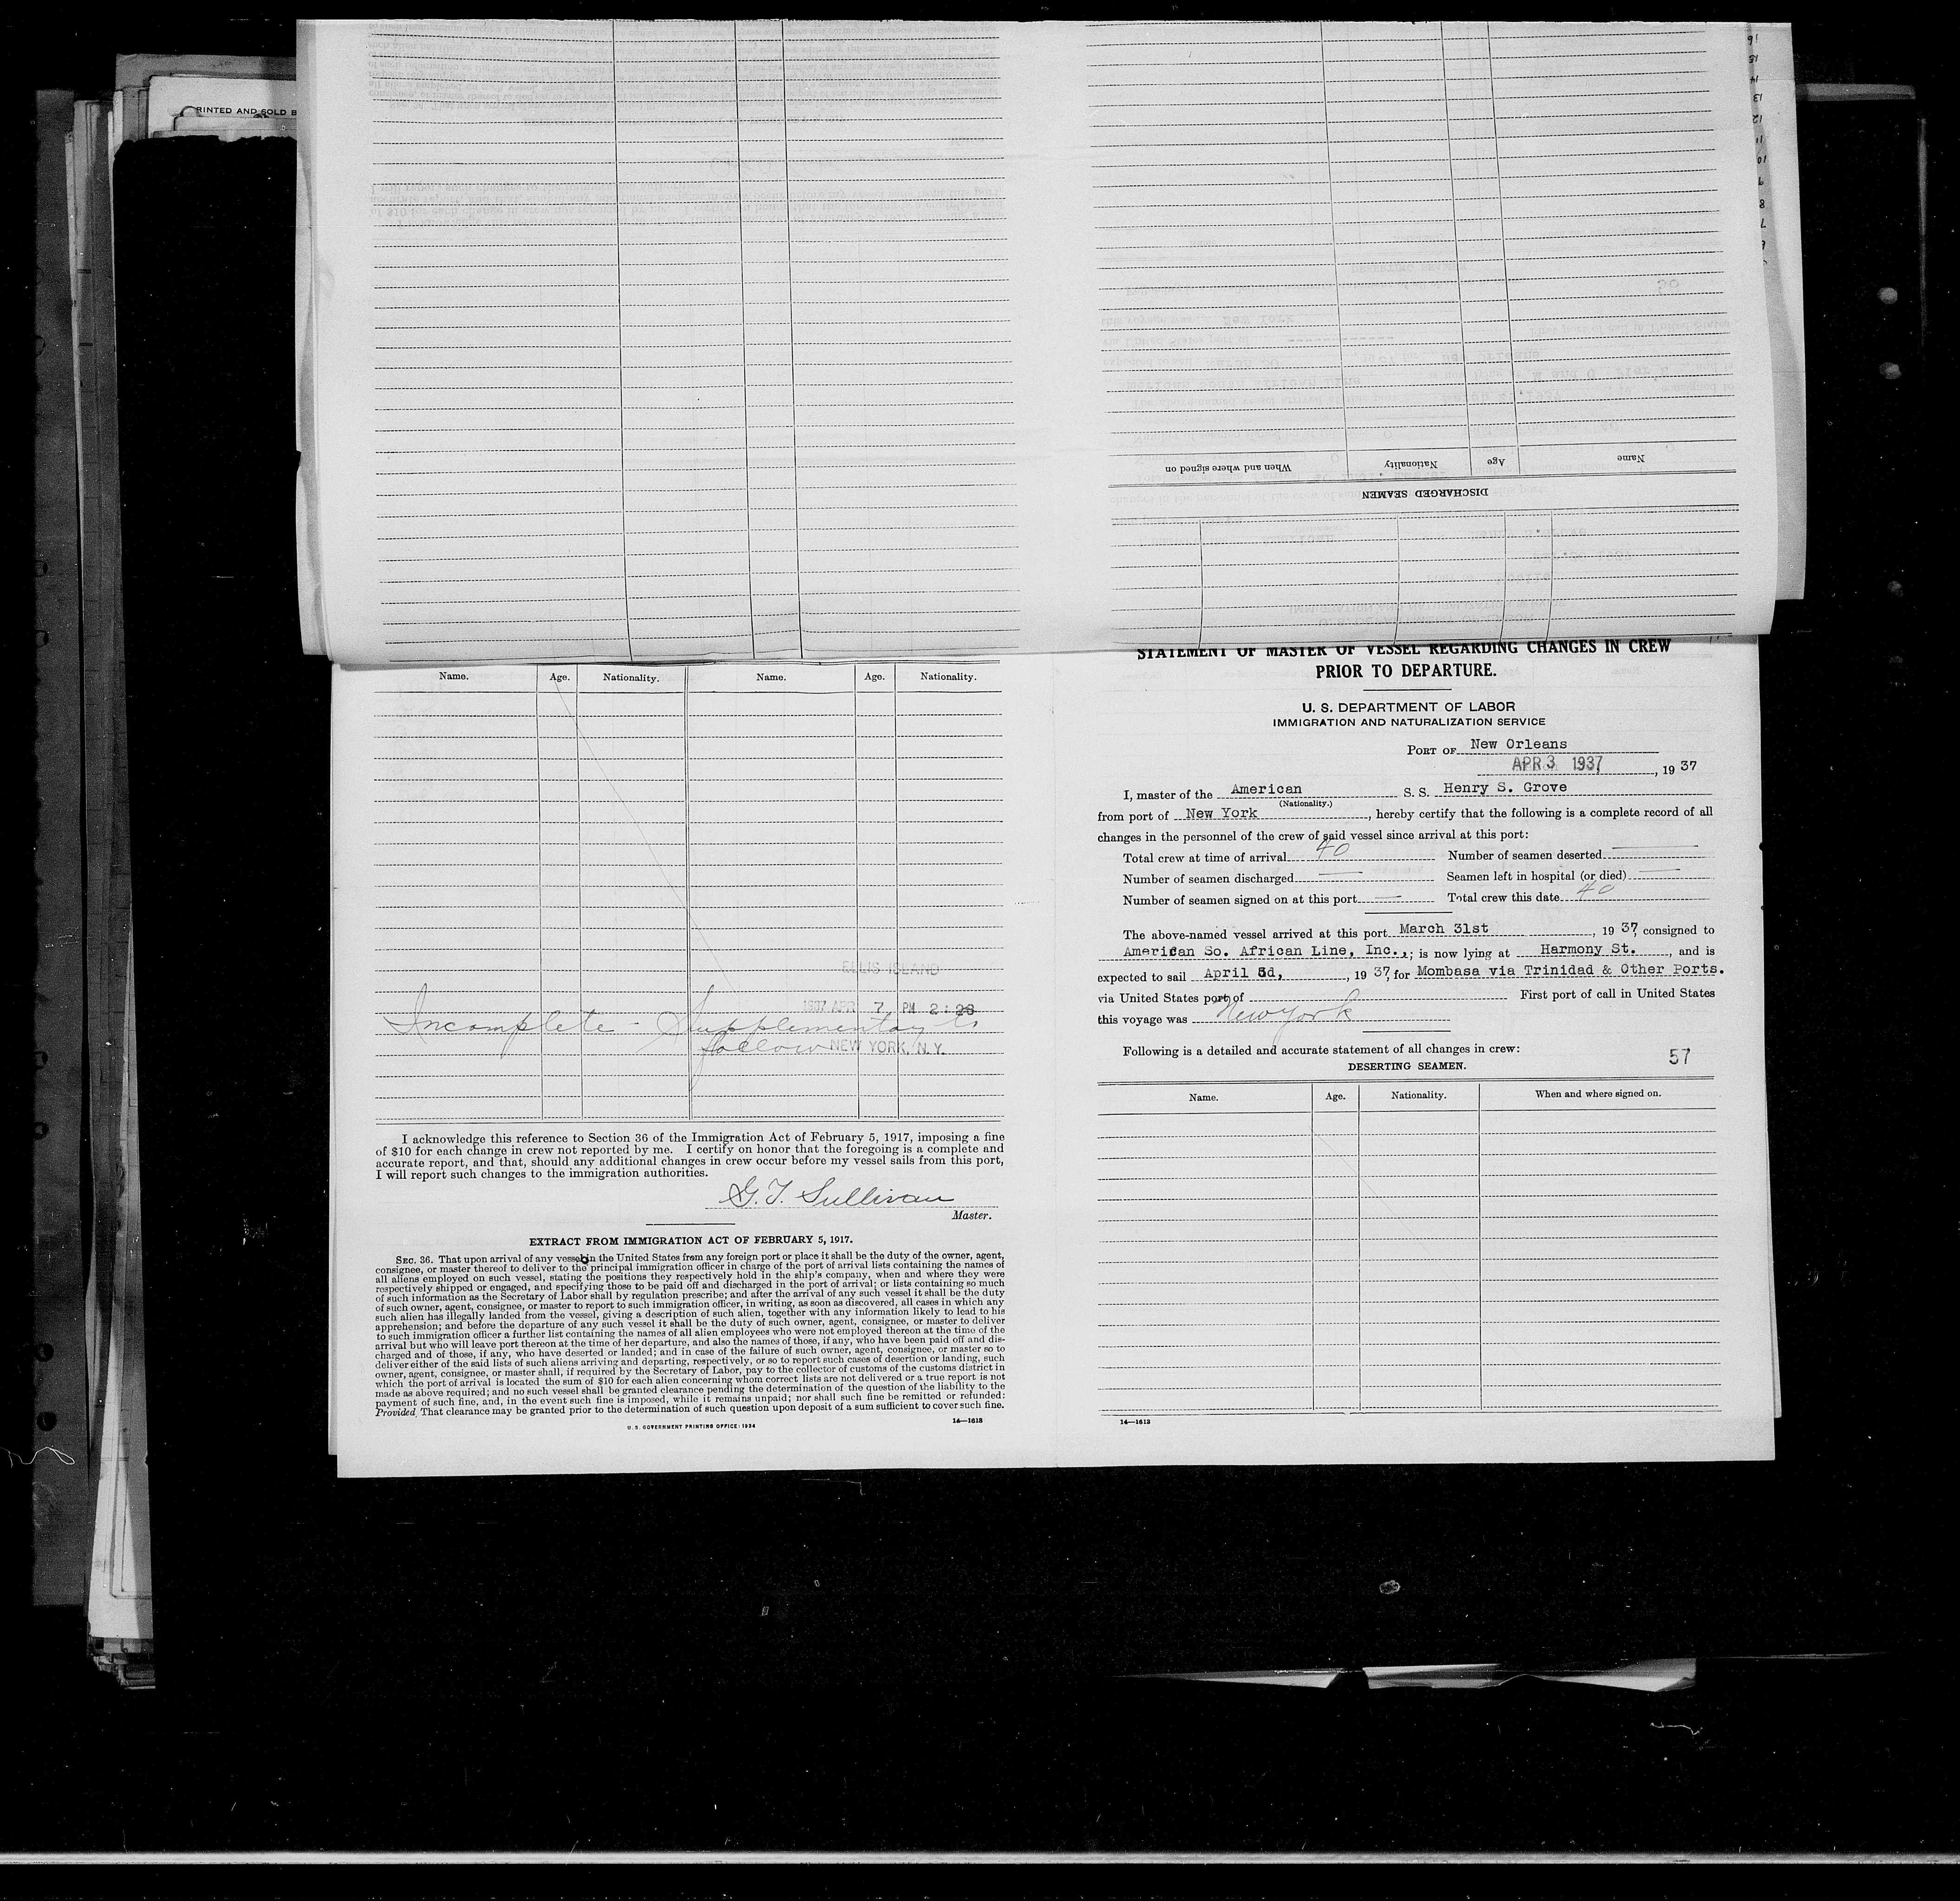 RINTED AND SOLD B
When and where signed on
Nationality
Age
Name
DISCHARGED SEAMEN
Name. Age. Nationality. Name. Age. Nationality.
ELLIS ISLAND
1937 APR 7 PM 2:28
Incomplete - Supplementary to
follow NEW YORK, N.Y.
I acknowledge this reference to Section 36 of the Immigration Act of February 5, 1917, imposing a fine
of $10 for each change in crew not reported by me. I certify on honor that the foregoing is a complete and
accurate report, and that, should any additional changes in crew occur before my vessel sails from this port,
I will report such changes to the immigration authorities.
G. T. Sullivan
Master.
EXTRACT FROM IMMIGRATION ACT OF FEBRUARY 5, 1917.
SEC. 36. That upon arrival of any vessel in the United States from any foreign port or place it shall be the duty of the owner, agent,
consignee, or master thereof to deliver to the principal immigration officer in charge of the port of arrival lists containing the names of
all aliens employed on such vessel, stating the positions they respectively hold in the ship's company, when and where they were
respectively shipped or engaged, and specifying those to be paid off and discharged in the port of arrival; or lists containing so much
of such information as the Secretary of Labor shall by regulation prescribe; and after the arrival of any such vessel it shall be the duty
of such owner, agent, consignee, or master to report to such immigration officer, in writing, as soon as discovered, all cases in which any
such alien has illegally landed from the vessel, giving a description of such alien, together with any information likely to lead to his
apprehension; and before the departure of any such vessel it shall be the duty of such owner, agent, consignee, or master to deliver
to such immigration officer a further list containing the names of all alien employees who were not employed thereon at the time of the
arrival but who will leave port thereon at the time of her departure, and also the names of those, if any, who have been paid off and dis-
charged and of those, if any, who have deserted or landed; and in case of the failure of such owner, agent, consignee, or master so to
deliver either of the said lists of such aliens arriving and departing, respectively, or so to report such cases of desertion or landing, such
owner, agent, consignee, or master shall, if required by the Secretary of Labor, pay to the collector of customs of the customs district in
which the port of arrival is located the sum of $10 for each alien concerning whom correct lists are not delivered or a true report is not
made as above required; and no such vessel shall be granted clearance pending the determination of the question of the liability to the
payment of such fine, and, in the event such fine is imposed, while it remains unpaid; nor shall such fine be remitted or refunded:
Provided, That clearance may be granted prior to the determination of such question upon deposit of a sum sufficient to cover such fine.
U. S. GOVERNMENT PRINTING OFFICE: 1934 14—1613
STATEMENT OF MASTER OF VESSEL REGARDING CHANGES IN CREW
PRIOR TO DEPARTURE.
U. S. DEPARTMENT OF LABOR
IMMIGRATION AND NATURALIZATION SERVICE
PORT OF New Orleans
APR 3 1937, 19 37
I, master of the American S. S. Henry S. Grove
(Nationality.)
from port of New York, hereby certify that the following is a complete record of all
changes in the personnel of the crew of said vessel since arrival at this port:
Total crew at time of arrival 40 Number of seamen deserted
Number of seamen discharged Seamen left in hospital (or died)
Number of seamen signed on at this port Total crew this date 40
The above-named vessel arrived at this port March 31st, 19 37, consigned to
American So. African Line, Inc.,; is now lying at Harmony St., and is
expected to sail April 3d, , 19 37, for Mombasa via Trinidad & Other Ports.
via United States port of First port of call in United States
this voyage was New York
Following is a detailed and accurate statement of all changes in crew:
57
DESERTING SEAMEN.
Name. Age. Nationality. When and where signed on.
14—1613